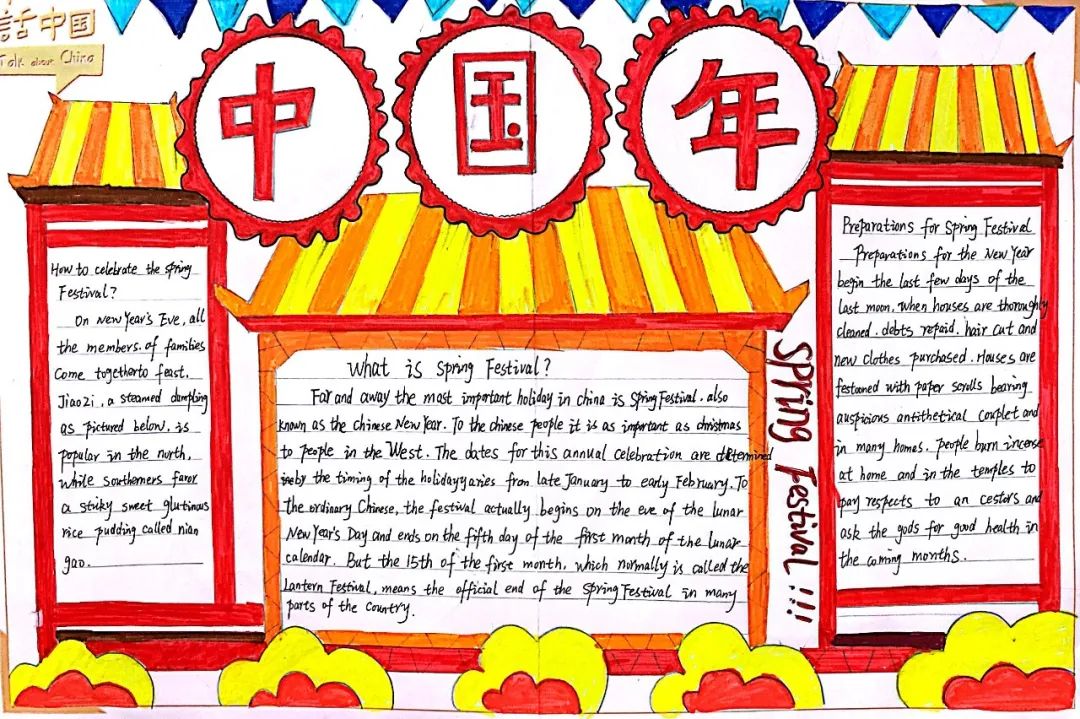 話中国
Talk about China
中国年
How to celebrate the spring
Festival?
On New Year's Eve, all
the members. of families
come togetherto feast.
Jiaozi, a steamed dumpling
as pictured below, is
popular in the north,
while southerners favor
a sticky sweet glutinous
rice pudding called nian
gao.
What is Spring Festival?
Far and away the most important holiday in china is Spring Festival. also
known as the chinese New Year. To the chinese people it is as important as christmas
to people in the West. The dates for this annual celebration are determined
by the timing of the holidayvaries from late January to early February. To
the ordinary Chinese, the festival actually begins on the eve of the lunar
New Year's Day and ends on the fifth day of the first month of the lunar
calendar. But the 15th of the first month, which normally is called the
Lantern Festival, means the official end of the Spring Festival in many
parts of the country.
Spring Festival!!!
Preparations for Spring Festival
Preparations for the New Year
begin the last few days of the
last moon, when houses are thoroughly
cleaned. debts repaid. hair cut and
new clothes purchased. Houses are
festooned with paper scrolls bearing
auspicious antithetical couplet and
in many homes. people burn incense
at home and in the temples to
pay respects to an cestors and
ask the gods for good health in
the coming months.